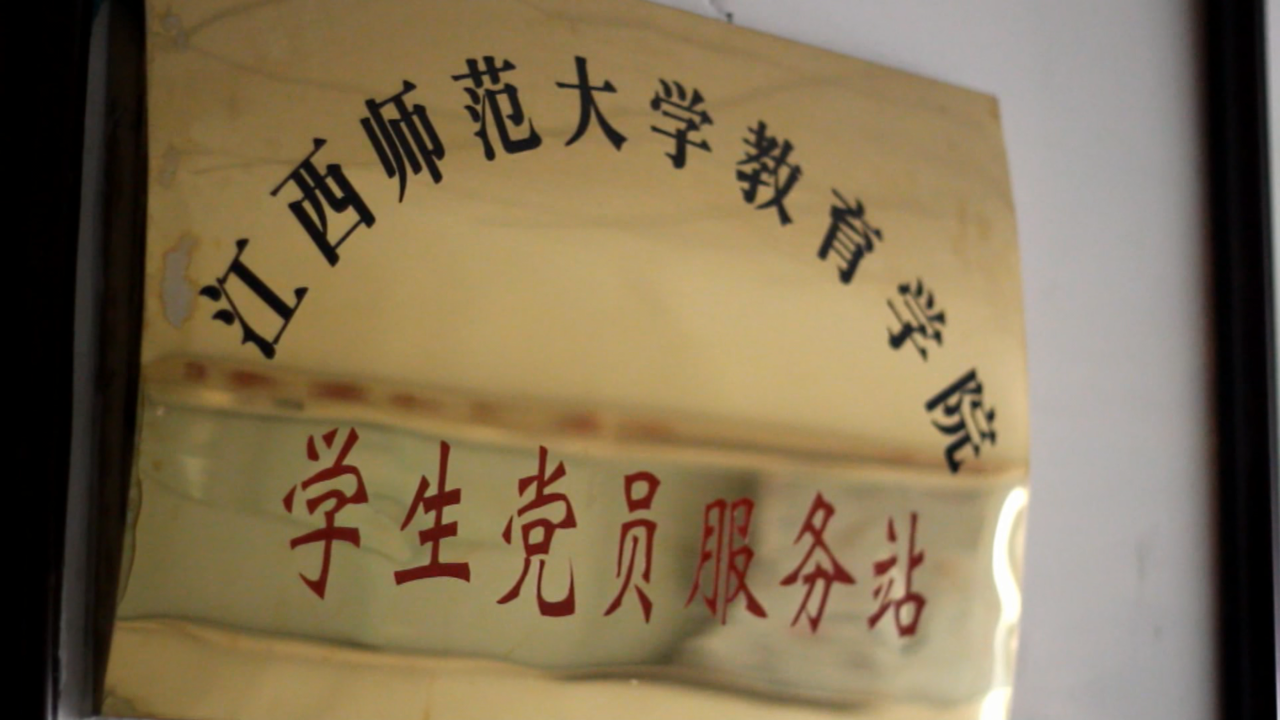 江西师范大学教育学院
学生党员服务站